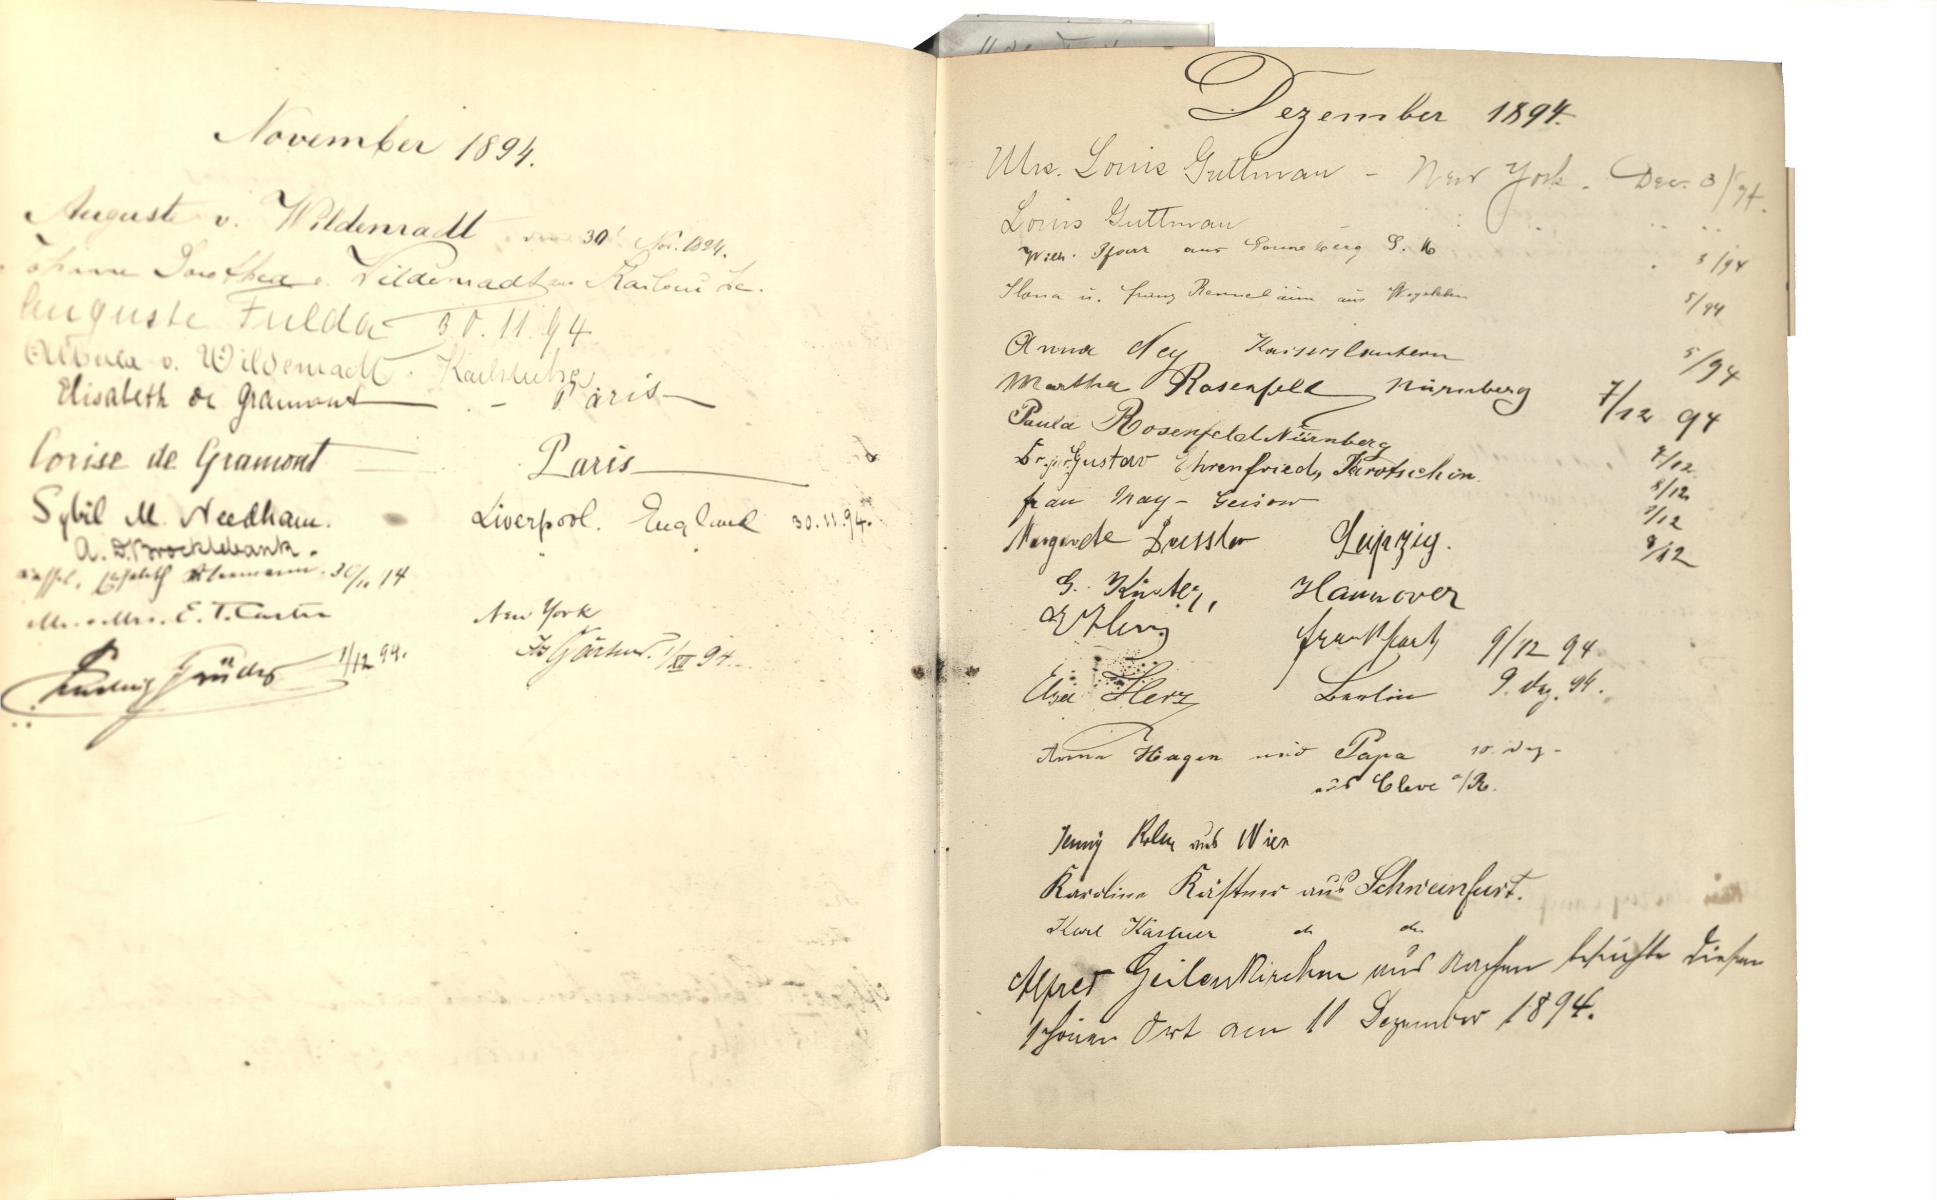 November 1894.
Auguste v. Wildenradt 30 Nov. 1894.
Dorothea v. Wildenradt
Auguste Fulda 30.11.94
v. Wildenradt. Karlsruhe
Elisabeth de Gramont - Paris
Corise de Gramont Paris
Sybil M. Needham. Liverpool. England 30.11.94.
A. D. Brocklebank. "
Mr. & Mrs. E. T. Carter New York
Ludwig 1/12 94. Gärtner. 1/XII 94.
Dezember 1894.
Mrs. Louis Guttman - New York. Dec. 3/94.
Louis Guttman " " " "
Wilh. Pfarr aus Sonneberg S. M 3/94
Ilona u. Franz aus 5/94
Anna Ney Kaiserslautern 5/94
Martha Rosenfeld Nürnberg 7/12 94
Paula Rosenfeld Nürnberg 7/12
Dr. jur. Gustav Ehrenfried, 8/12
Frau May-
Leipzig. 8/12
G. Küster, Hannover
Frankfurt 9/12 94
Elsa Herz Berlin 9. Dez. 94.
Anna Hagen und Papa 10. Dez.
aus Cleve a/R.
Jenny aus Wien
Karoline Kästner aus Schweinfurt.
Karl Kästner do do
Alfred Geilenkirchen aus Aachen besuchte diesen
schönen Ort am 11 Dezember 1894.